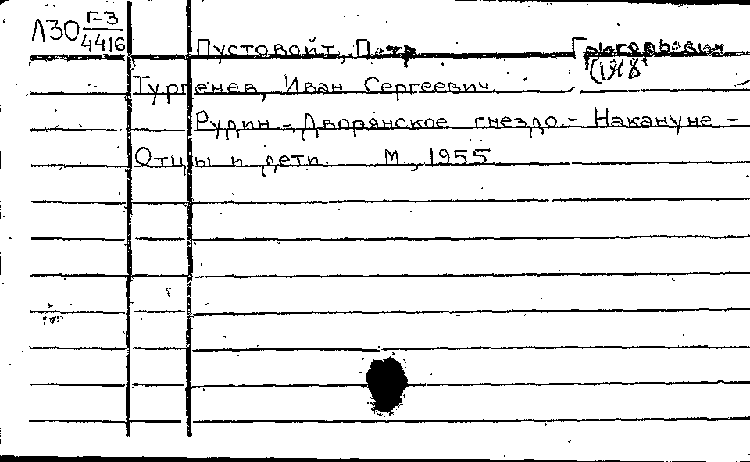 Л30 Г-3
4416
Пустовойт, Петр Григорьевич
(1918
Тургенев, Иван Сергеевич
Рудин - Дворянское гнездо - Накануне -
Отцы и дети М, 1955